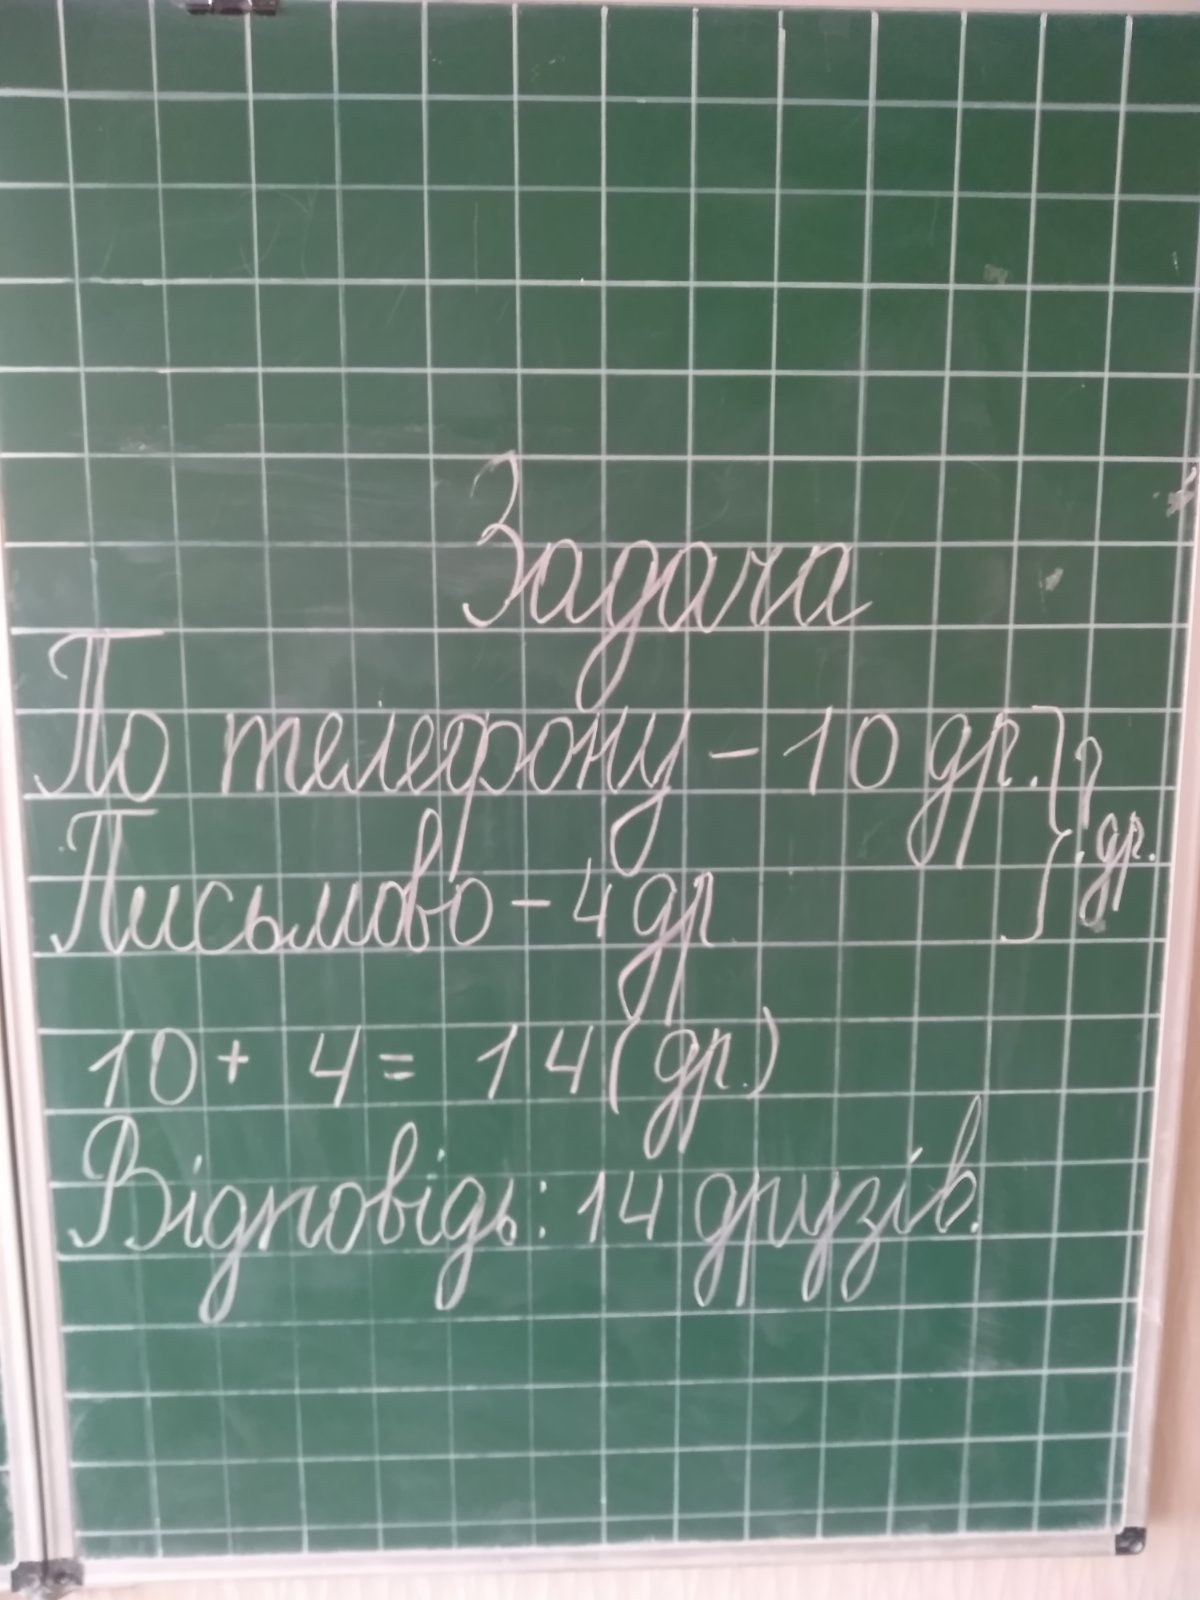 Задача
По телефону - 10 др. } ? др.
Письмово - 4 др
10 + 4 = 14 (др.)
Відповідь: 14 друзів.